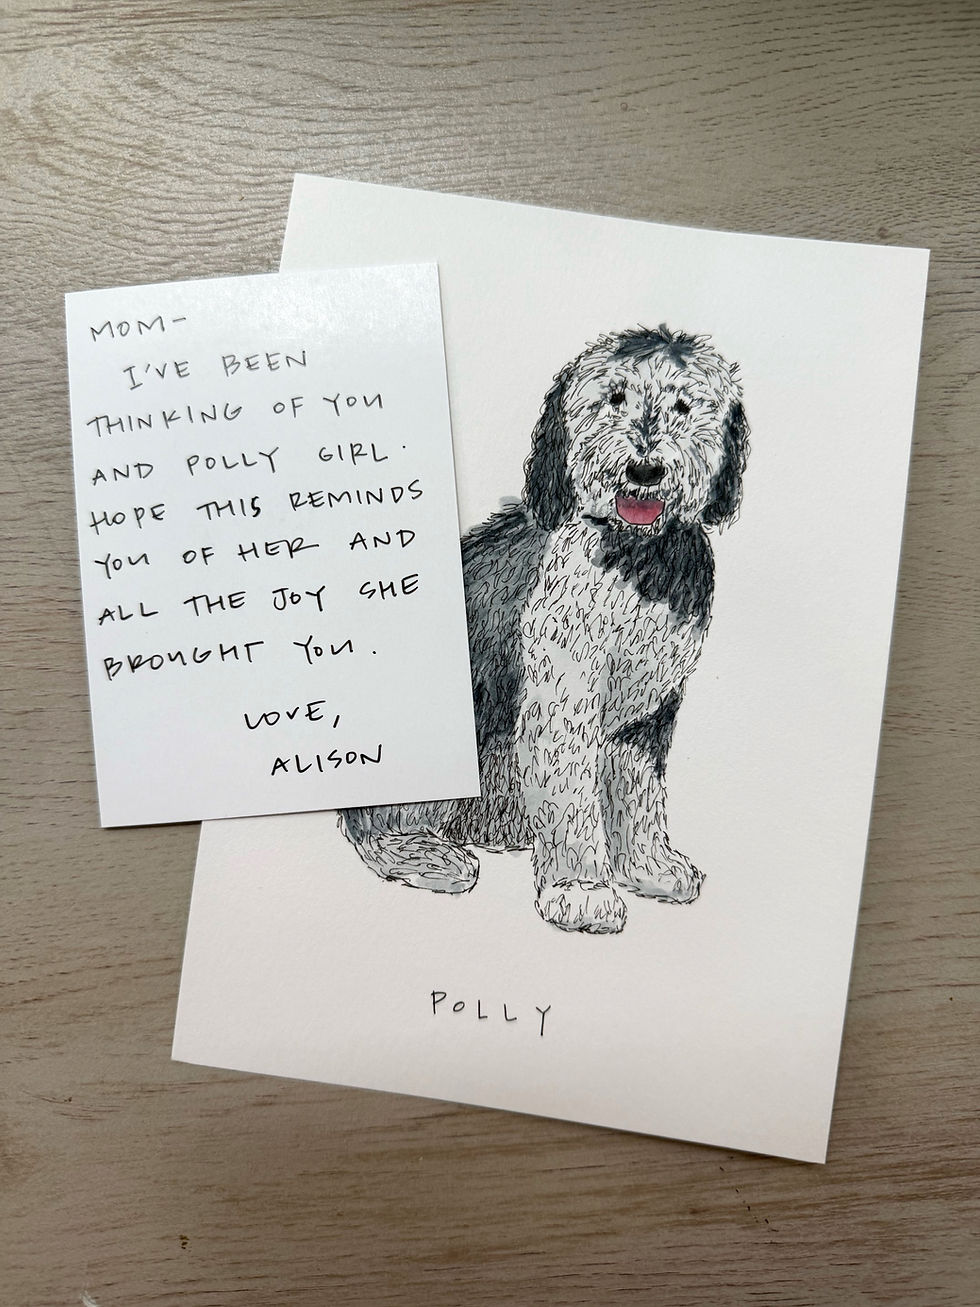 MOM-
I'VE BEEN
THINKING OF YOU
AND POLLY GIRL.
HOPE THIS REMINDS
YOU OF HER AND
ALL THE JOY SHE
BROUGHT YOU.
LOVE,
ALISON
POLLY